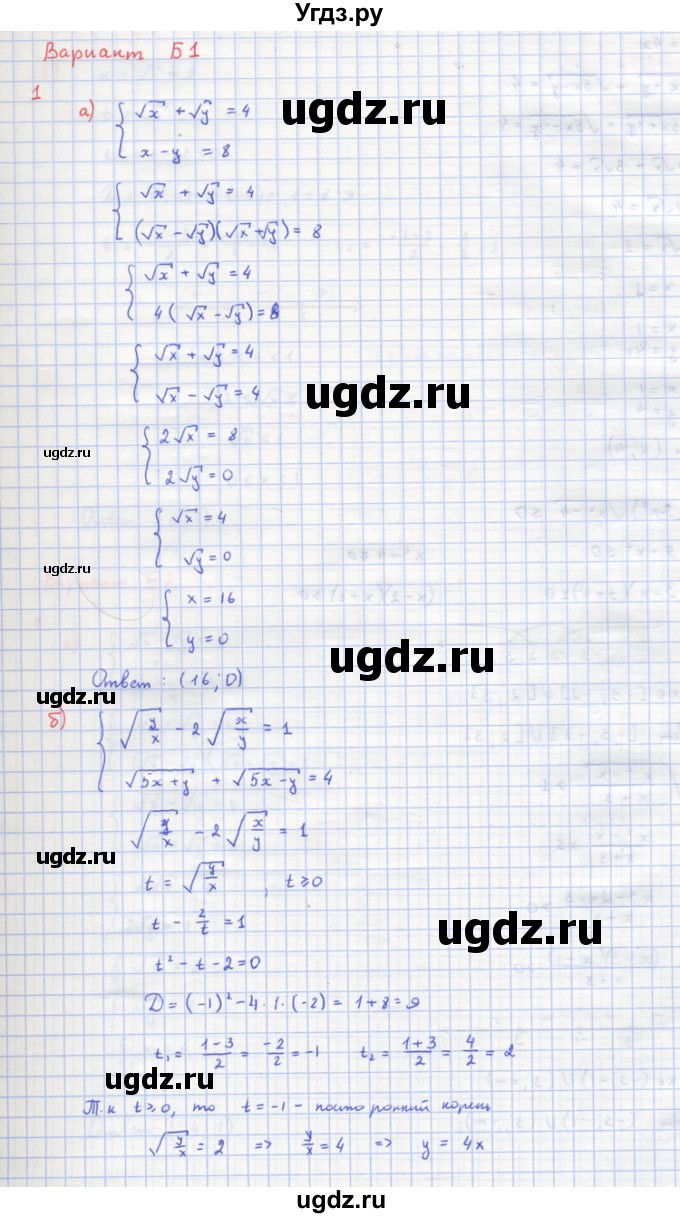 Угдз.ру
Вариант Б1
1
а) { √x + √y = 4
x - y = 8
ugdz.ru
{ √x + √y = 4
(√x - √y)(√x + √y) = 8
{ √x + √y = 4
4(√x - √y) = 8
{ √x + √y = 4
√x - √y = 4
ugdz.ru
{ 2√x = 8
2√y = 0
ugdz.ru
{ √x = 4
√y = 0
ugdz.ru
{ x = 16
y = 0
ugdz.ru
Ответ: (16; 0)
ugdz.ru
б) { √(y/x) - 2√(x/y) = 1
√(5x+y) + √(5x-y) = 4
√(y/x) - 2√(x/y) = 1
ugdz.ru
t = √(y/x) , t ≥ 0
t - 2/t = 1
ugdz.ru
t² - t - 2 = 0
D = (-1)² - 4·1·(-2) = 1 + 8 = 9
t₁ = (1-3)/2 = -2/2 = -1 t₂ = (1+3)/2 = 4/2 = 2
ugdz.ru
Т.к t ≥ 0, то t = -1 - посторонний корень
√(y/x) = 2 => y/x = 4 => y = 4x
ugdz.ru